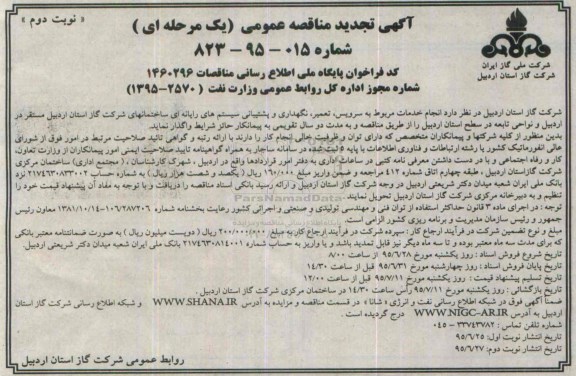 « نوبت دوم »
آگهی تجدید مناقصه عمومی (یک مرحله ای )
شماره ۰۱۵ – ۹۵ – ۸۲۳
کد فراخوان پایگاه ملی اطلاع رسانی مناقصات ۱۴۶۰۲۹۶
شماره مجوز اداره کل روابط عمومی وزارت نفت ( ۲۵۷۰–۱۳۹۵)
شرکت ملی گاز ایران
شرکت گاز استان اردبیل
شرکت گاز استان اردبیل در نظر دارد انجام خدمات مربوط به سرویس، تعمیر، نگهداری و پشتیبانی سیستم های رایانه ای ساختمانهای شرکت گاز استان اردبیل مستقر در
اردبیل و نواحی تابعه در سطح استان اردبیل را از طریق مناقصه و به مدت یکسال تقویمی به پیمانکار حائز شرایط واگذار نمایند.
بدین منظور از کلیه شرکتها و پیمانکاران متخصص که دارای توان و ظرفیت خالی انجام کار را دارند با ارائه رتبه و گواهی تائید صلاحیت مرتبط در امور فوق از شورای
عالی انفورماتیک کشور یا رشته ارتباطات و فناوری اطلاعات با پایه ۵ ثبت شده در سامانه ساجار به همراه گواهینامه تایید صلاحیت ایمنی امور پیمانکاران از وزارت تعاون،
کار و رفاه اجتماعی و با در دست داشتن معرفی نامه کتبی در ساعات اداری به دفتر امور قراردادها واقع در اردبیل ، شهرک کارشناسان ، ( مجتمع اداری) ساختمان مرکزی
شرکت گازاستان اردبیل ، طبقه چهارم اتاق شماره ۴۱۲ مراجعه و ضمن واریز مبلغ ۱۶۰/۰۰۰ ریال ( یکصد و شصت هزار ریال ) به شماره حساب ۲۱۷۴۶۳۰۸۳۳۰۰۲ نزد
بانک ملی ایران شعبه میدان دکتر شریعتی اردبیل در وجه شرکت گاز استان اردبیل و ارائه رسید بانکی اسناد مناقصه را دریافت و با توجه به مفاد آن پیشنهاد قیمت خود را
تنظیم و به دبیرخانه مرکزی شرکت گاز استان اردبیل تحویل نمایند.
توجه : در اجرای ماده ۳ قانون حداکثر استفاده از توان فنی و مهندسی تولیدی و صنعتی و اجرائی کشور رعایت بخشنامه شماره ۱۰۶/۲۸۷۲۰۶–۱۳۸۱/۱۰/۱۴ معاون رئیس
جمهور و رئیس سازمان مدیریت و برنامه ریزی کشور الزامی است.
مبلغ و نوع تضمین شرکت در فرآیند ارجاع کار : سپرده شرکت در فرآیند ارجاع کار به مبلغ ۲۰۰/۰۰۰/۰۰۰ ریال ( دویست میلیون ریال ) به صورت ضمانتنامه معتبر بانکی
که برای مدت سه ماه معتبر بوده و تا سه ماه دیگر نیز قابل تمدید باشد و یا واریز به حساب شماره ۲۱۷۴۶۳۰۸۱۴۰۰۱ بانک ملی ایران شعبه میدان دکتر شریعتی اردبیل.
تاریخ شروع فروش اسناد : روز یکشنبه مورخ ۹۵/۶/۲۸ از ساعت ۸/۰۰
تاریخ پایان فروش اسناد : روز چهارشنبه مورخ ۹۵/۶/۳۱ قبل از ساعت ۱۴/۳۰
تاریخ تسلیم پیشنهاد قیمت : روز یکشنبه مورخ ۹۵/۷/۱۱ قبل از ساعت ۱۲/۰۰
تاریخ بازگشائی : روز یکشنبه مورخ ۹۵/۷/۱۱ رأس ساعت ۱۴/۳۰ در ساختمان مرکزی شرکت گاز استان اردبیل.
ضمناً آگهی فوق در شبکه اطلاع رسانی نفت و انرژی « شانا » در قسمت مناقصه و مزایده به آدرس WWW.SHANA.IR و شبکه اطلاع رسانی شرکت گاز استان
اردبیل به آدرس WWW.NIGC-AR.IR درج گردیده است .
شماره تلفن تماس : ۳۳۷۴۳۷۸۲ – ۰۴۵
تاریخ انتشار نوبت اول: ۹۵/۶/۲۵
تاریخ انتشار نوبت دوم: ۹۵/۶/۲۷
روابط عمومی شرکت گاز استان اردبیل
ParsNamadData